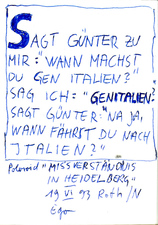 SAGT GÜNTER ZU
MIR: "WANN MACHST
DU GEN ITALIEN?"
SAG ICH: "GENITALIEN?"
SAGT GÜNTER: "NA JA,
WANN FÄHRST DU NACH
ITALIEN?"
Polaroid "MISSVERSTÄNDNIS
IN HEIDELBERG"
19 VI 93 Roth/N